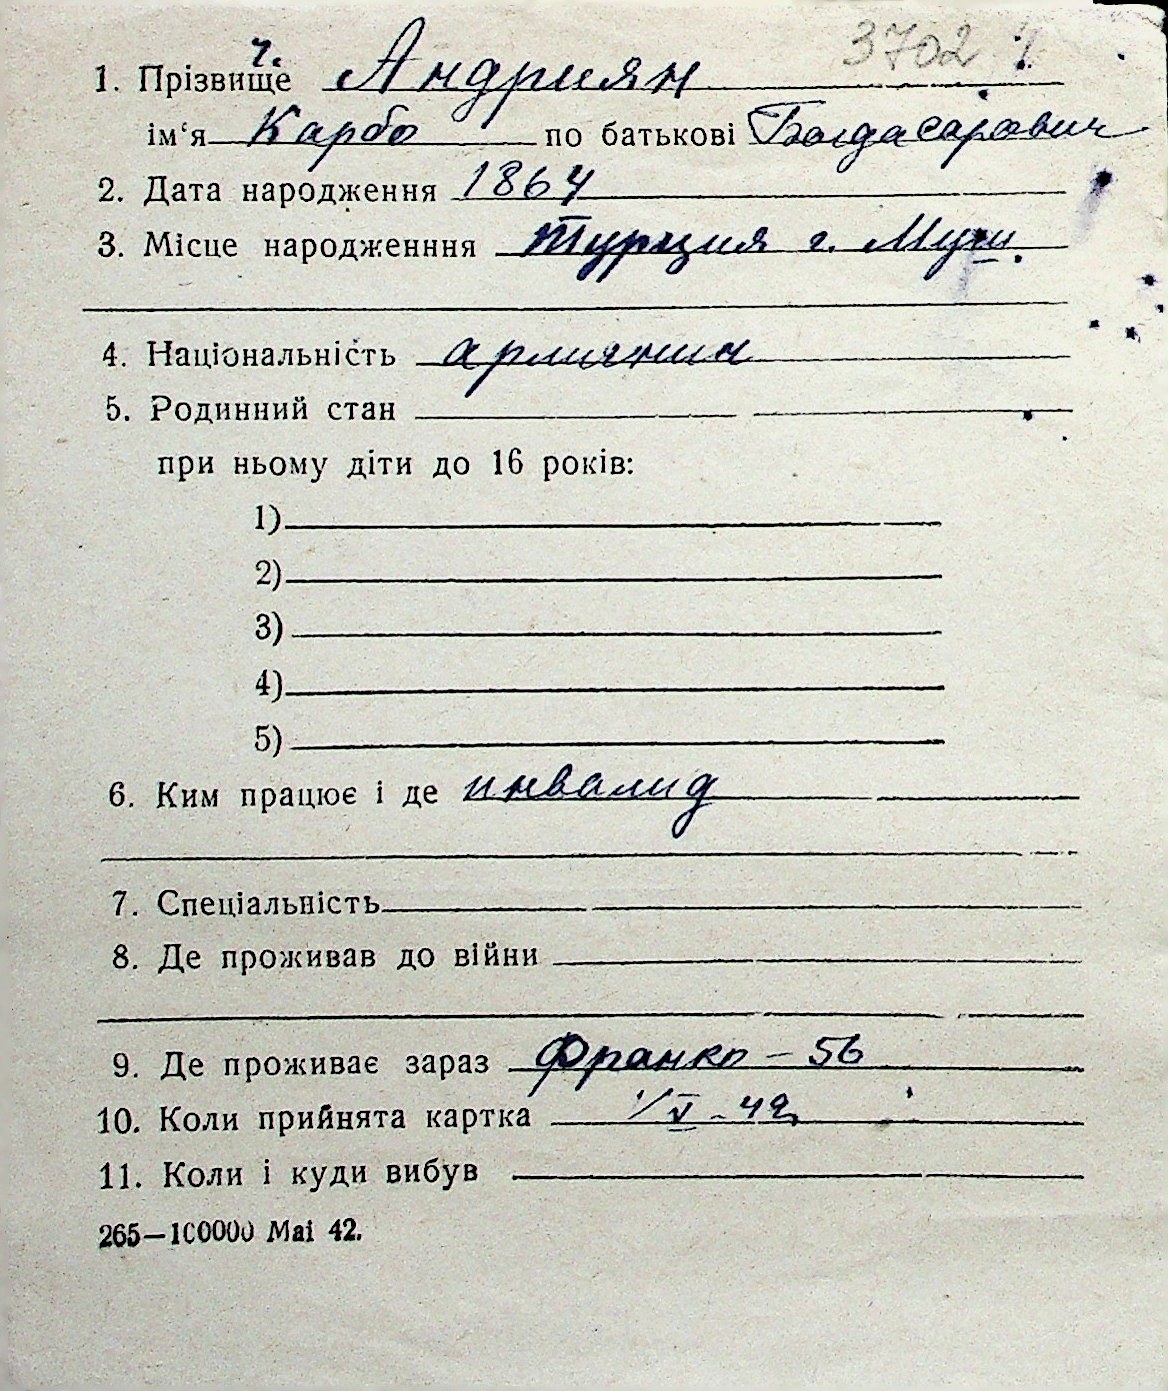 3702
ч.
1. Прізвище Андриян
ім‘я Карбо по батькові Багдасарович
2. Дата народження 1864
3. Місце народженння Турция г. Муш.
4. Національність армянин
5. Родинний стан
при ньому діти до 16 років:
1)
2)
3)
4)
5)
6. Ким працює і де инвалид
7. Спеціальність
8. Де проживав до війни
9. Де проживає зараз Франко – 56
10. Коли прийнята картка 1/V - 42
11. Коли і куди вибув
265—100000 Mai 42.